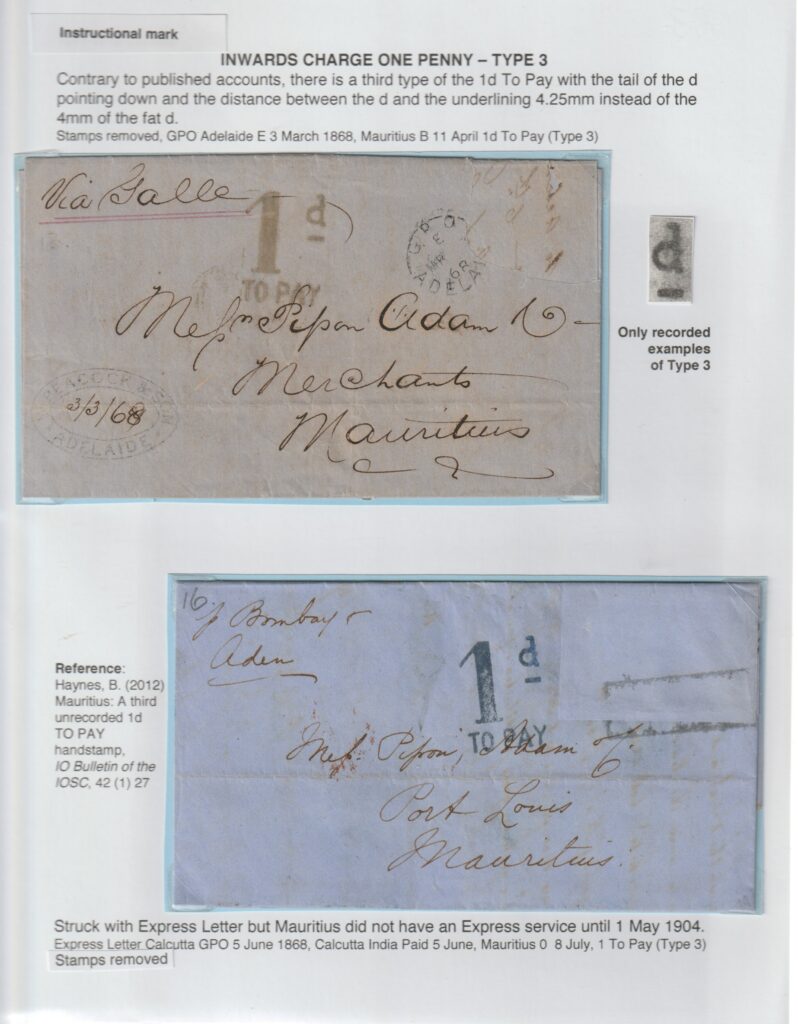 Instructional mark
INWARDS CHARGE ONE PENNY – TYPE 3
Contrary to published accounts, there is a third type of the 1d To Pay with the tail of the d
pointing down and the distance between the d and the underlining 4.25mm instead of the
4mm of the fat d.
Stamps removed, GPO Adelaide E 3 March 1868, Mauritius B 11 April 1d To Pay (Type 3)
Via Galle
1d
TO PAY
G.P.O
E
MR 3
68
ADELAI
Messrs Pipon Adam & Co
Merchants
Mauritius
PEACOCK & SON
3/3/68
ADELAIDE
d
Only recorded
examples
of Type 3
16
p Bombay &
Aden
1d
TO PAY
Messrs Pipon, Adam & Co
Port Louis
Mauritius.
Reference:
Haynes, B. (2012)
Mauritius: A third
unrecorded 1d
TO PAY
handstamp,
IO Bulletin of the
IOSC, 42 (1) 27
Struck with Express Letter but Mauritius did not have an Express service until 1 May 1904.
Express Letter Calcutta GPO 5 June 1868, Calcutta India Paid 5 June, Mauritius 0 8 July, 1 To Pay (Type 3)
Stamps removed